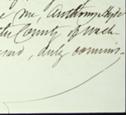 me, Anthony
the County of
and, duly commis-